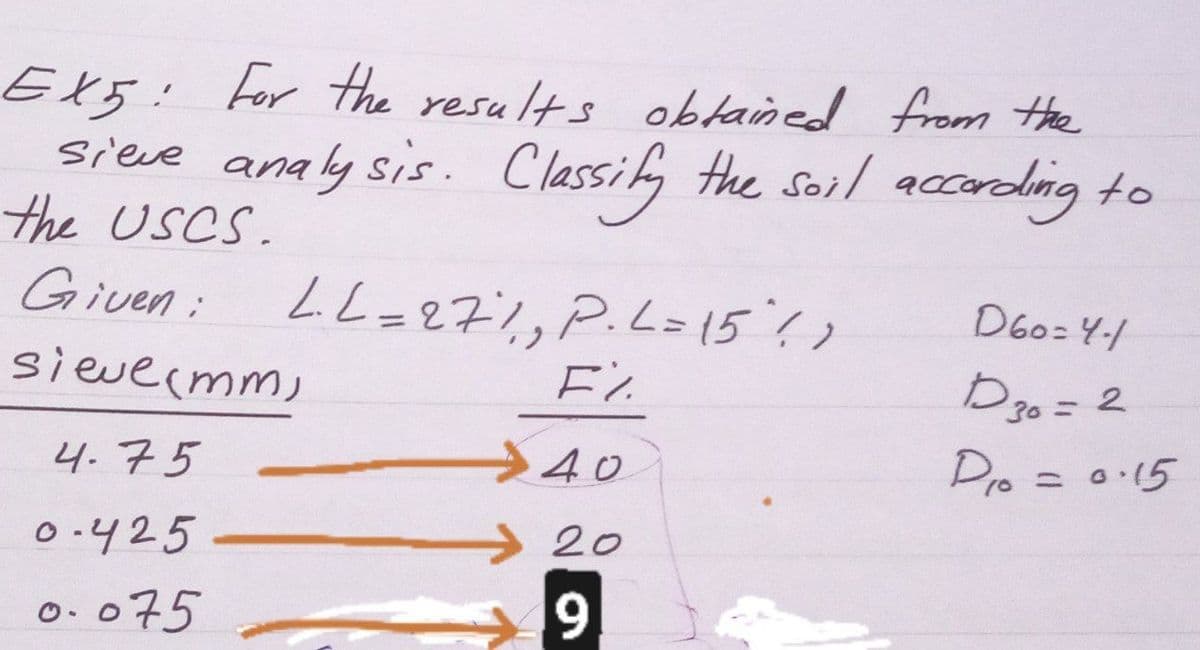 EX5: For the results obtained from the
sieve analysis. Classify the soil according to
the USCS.
Given: L.L=27%, P.L=15%, D60=4.1
sieve(mm) F% D30=2
4.75 → 40 D10=0.15
0.425 → 20
0.075 → 9